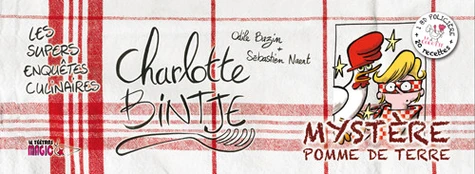 LES
SUPERS
ENQUÊTES
CULINAIRES
Odile Bazin
+ Sébastien Naert
Charlotte
BINTJE
1 BD POLICIÈRE
20 recettes
MYSTÈRE
POMME DE TERRE
LE THÉÂTRE
MAGIC